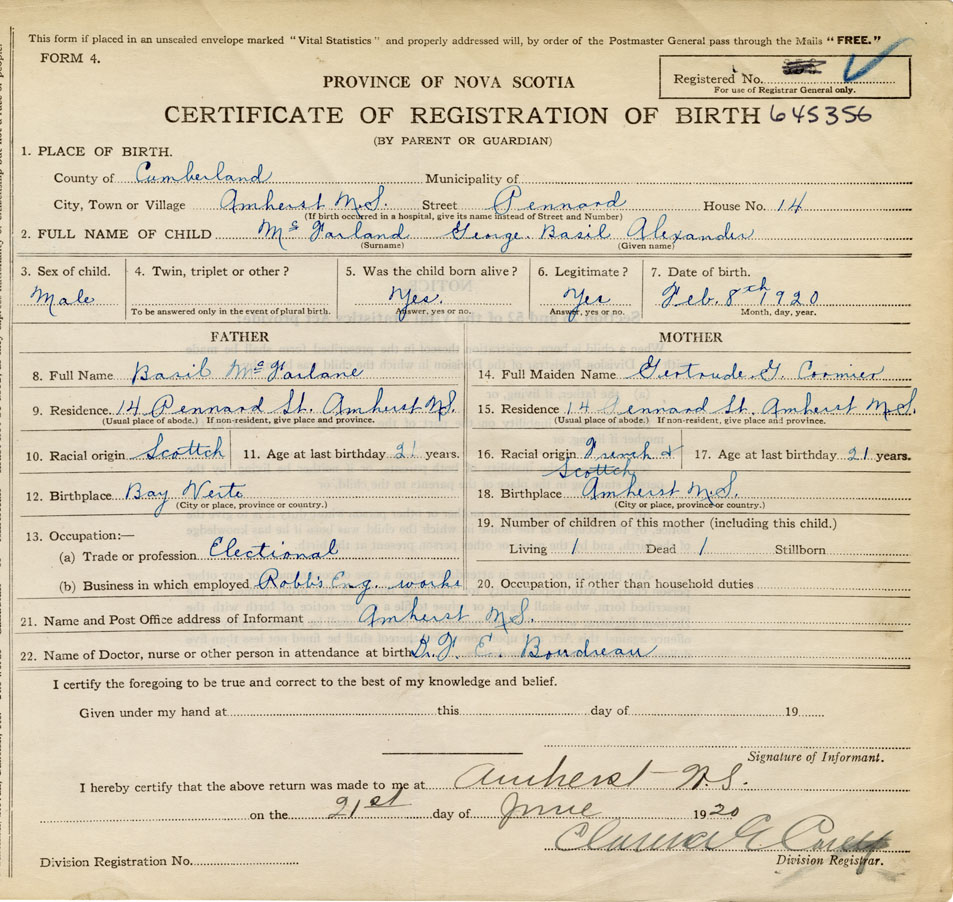 This form if placed in an unsealed envelope marked "Vital Statistics" and properly addressed will, by order of the Postmaster General pass through the Mails "FREE."
FORM 4.
Registered No.
For use of Registrar General only.
PROVINCE OF NOVA SCOTIA
CERTIFICATE OF REGISTRATION OF BIRTH 645356
(BY PARENT OR GUARDIAN)
1. PLACE OF BIRTH.
County of Cumberland Municipality of
City, Town or Village Amherst N.S. Street Pennard House No. 14
(If birth occured in a hospital, give its name instead of Street and Number)
2. FULL NAME OF CHILD McFarland George Basil Alexander
(Surname) (Given name)
3. Sex of child. 4. Twin, triplet or other? 5. Was the child born alive? 6. Legitimate? 7. Date of birth.
Male Yes. Yes Feb. 8th 1920
To be answered only in the event of plural birth. Answer, yes or no. Answer, yes or no. Month, day, year.
FATHER MOTHER
8. Full Name Basil McFarlane 14. Full Maiden Name Gertrude G. Cormier
9. Residence. 14 Pennard St. Amherst N.S. 15. Residence 14 Pennard St. Amherst N.S.
(Usual place of abode.) If non-resident, give place and province. (Usual place of abode.) If non-resident, give place and province.
10. Racial origin Scottch 11. Age at last birthday 21 years. 16. Racial origin French & Scottch 17. Age at last birthday 21 years.
12. Birthplace Bay Verte 18. Birthplace Amherst N.S.
(City or place, province or country.) (City or place, province or country.)
13. Occupation:— 19. Number of children of this mother (including this child.)
(a) Trade or profession Electional Living 1 Dead 1 Stillborn
(b) Business in which employed Robb's Eng. works 20. Occupation, if other than household duties
21. Name and Post Office address of Informant Amherst N.S.
22. Name of Doctor, nurse or other person in attendance at birth Dr. F. E. Boudreau
I certify the foregoing to be true and correct to the best of my knowledge and belief.
Given under my hand at this day of 19
Signature of Informant.
I hereby certify that the above return was made to me at Amherst N.S.
on the 21st day of June 1920
Clarence E
Division Registration No. Division Registrar.